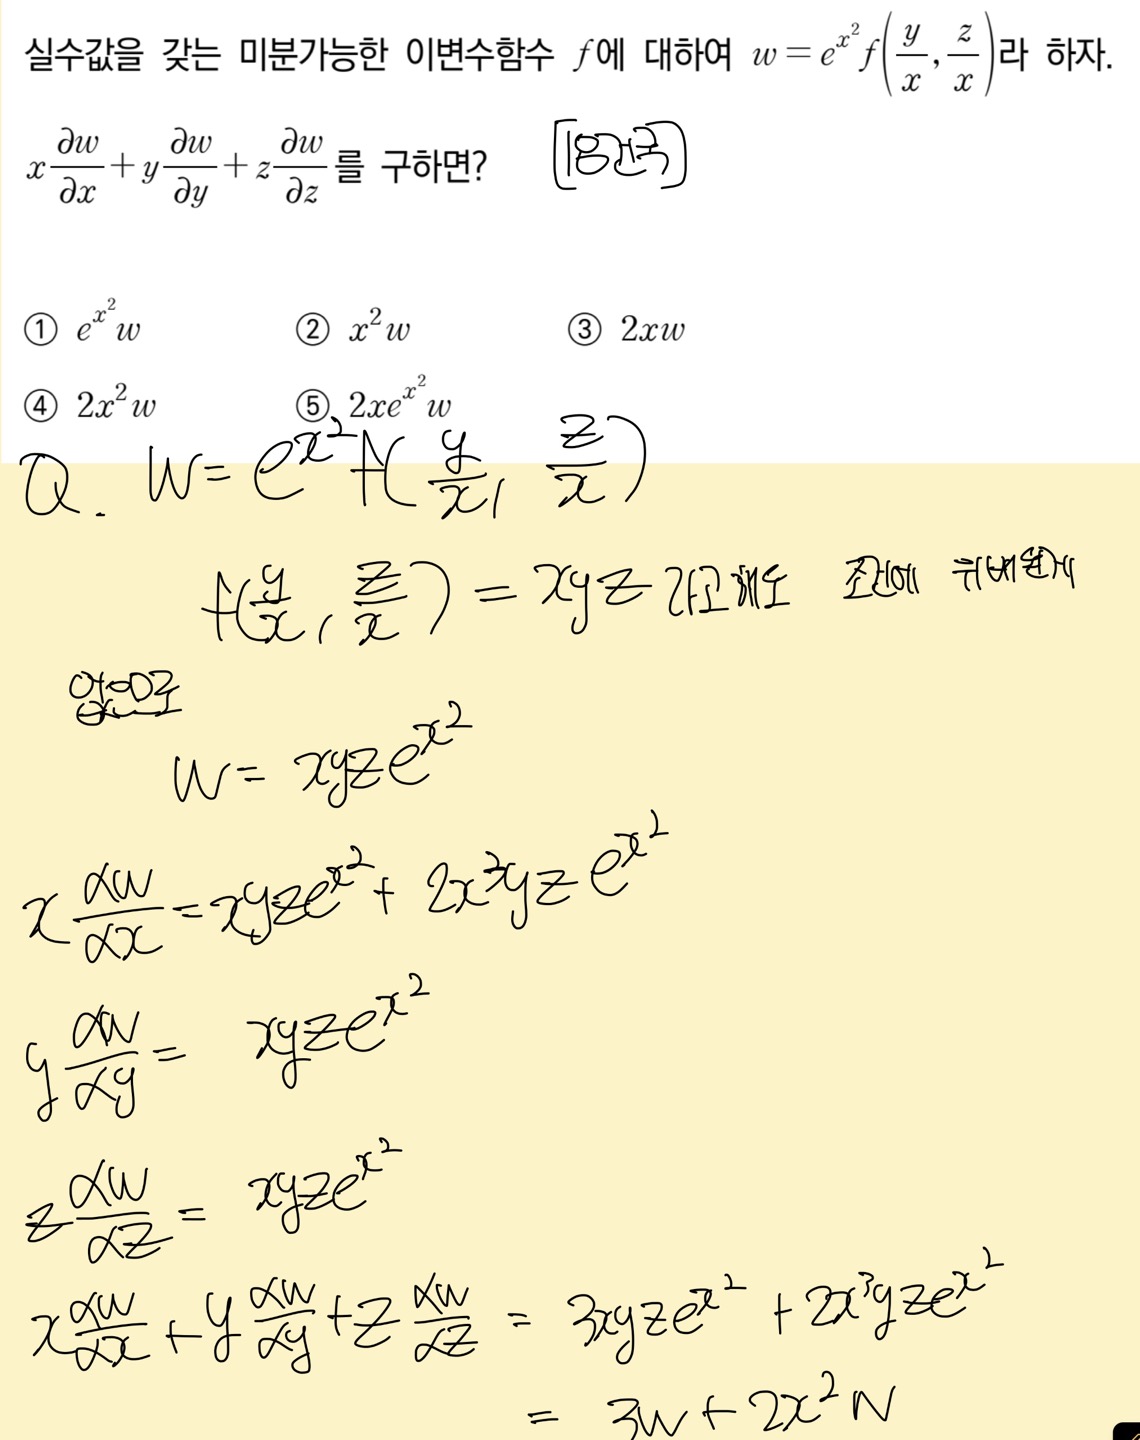 실수값을 갖는 미분가능한 이변수함수 f에 대하여 w = e^{x^2} f(y/x, z/x)라 하자.
x ∂w/∂x + y ∂w/∂y + z ∂w/∂z 를 구하면? [18건국]
① e^{x^2} w ② x^2 w ③ 2xw
④ 2x^2 w ⑤ 2xe^{x^2} w
Q. W = e^{x^2} f(y/x, z/x)
f(y/x, z/x) = xyz 라고해도 조건에 위배된게
없으므로
W = xyze^{x^2}
x αw/αx = xyze^{x^2} + 2x^3yze^{x^2}
y αw/αy = xyze^{x^2}
z αw/αz = xyze^{x^2}
x αw/αx + y αw/αy + z αw/αz = 3xyze^{x^2} + 2x^3yze^{x^2}
= 3w + 2x^2 W